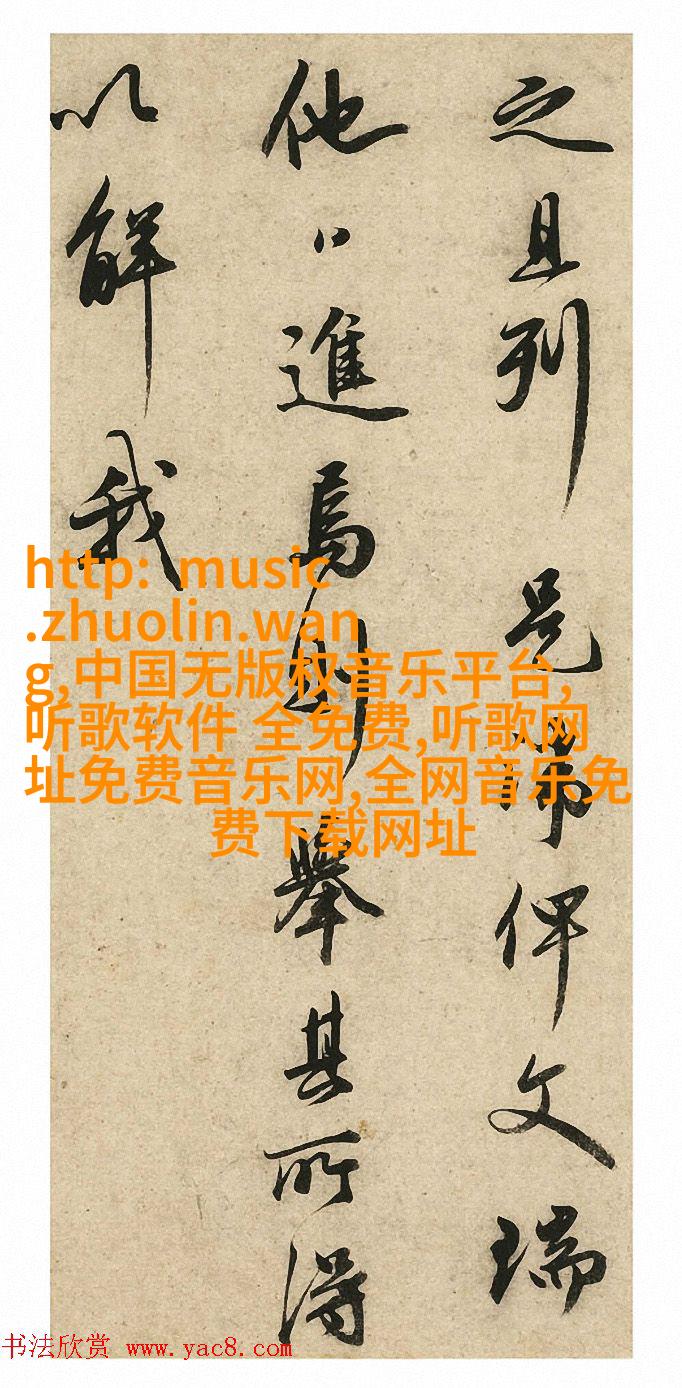 之且列是歸俾文瑞
他日進焉則舉其所得
以解我
http: music
.zhuolin.wan
g,中国无版权音乐平台,
听歌软件 全免费,听歌网
址免费音乐网,全网音乐免
费下载网址
书法欣赏 www.yac8.com